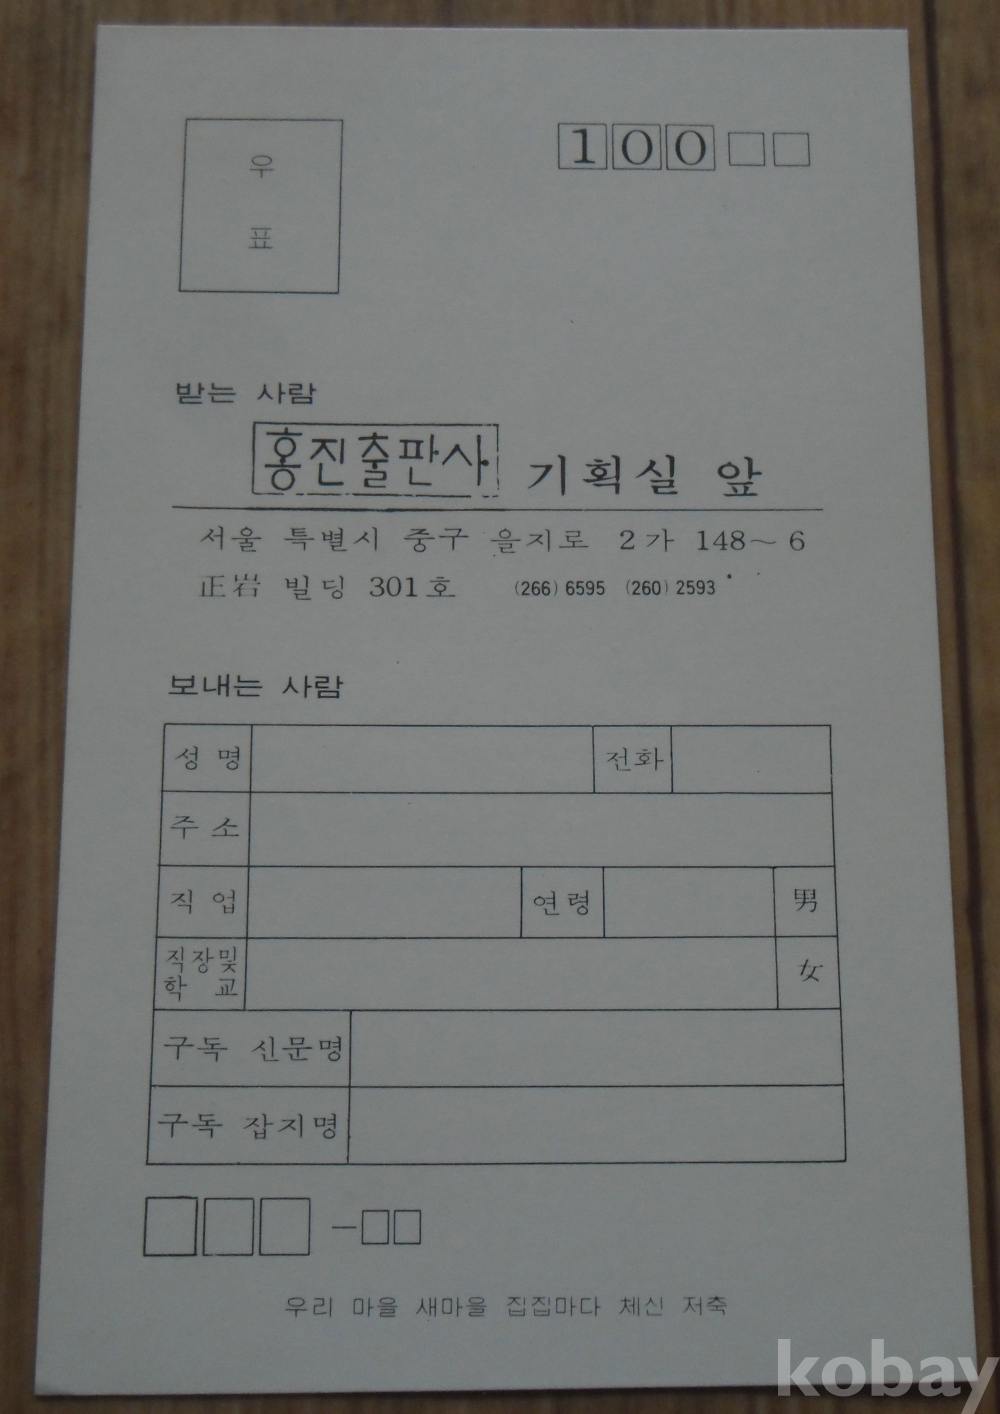 우
표
100
받는 사람
홍진출판사 기획실 앞
서울 특별시 중구 을지로 2가 148~6
正岩 빌딩 301호 (266) 6595 (260) 2593
보내는 사람
성명 전화
주소
직업 연령 男
직장및
학교 女
구독 신문명
구독 잡지명
우리 마을 새마을 집집마다 체신 저축
kobay